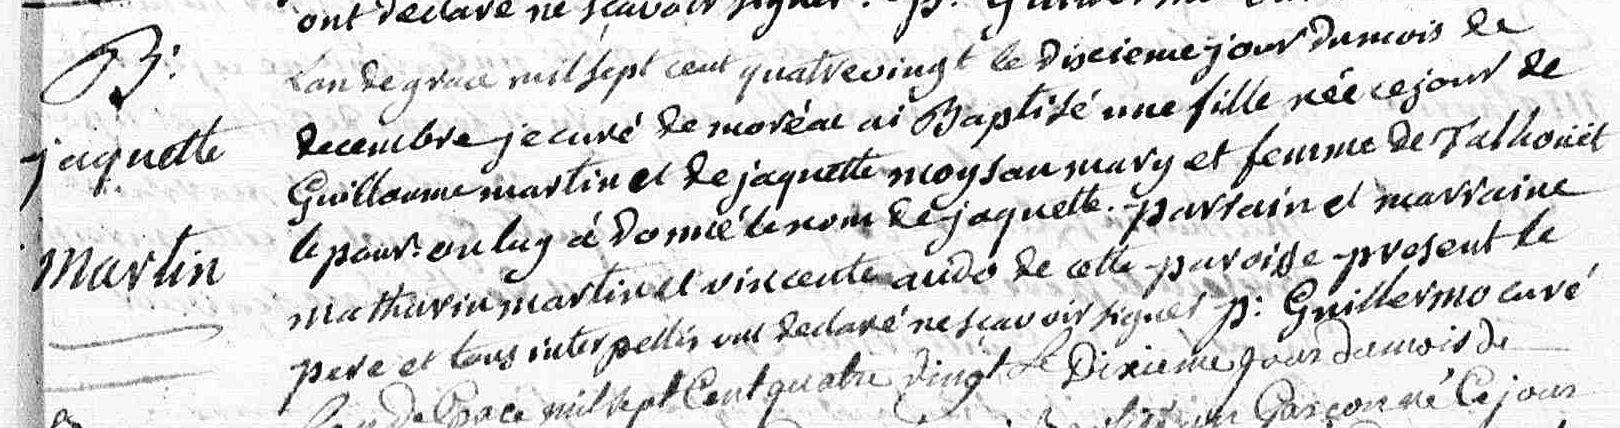 ont declaré ne sçavoir signer. p. Guillermo
B.
jaquette
martin
Lan de grace mil sept cent quatrevingt le dixieme jour du mois de
decembre je curé de moréac ai Baptisé une fille née ce jour de
Guillaume martin et de jaquette moysan mary et femme de Talhouët
le pour. on luy á donné le nom de jaquette. parrain et marraine
mathurin martin et vincente audo de cette paroisse present le
pere et tous interpellés ont declaré ne sçavoir signer p: Guillermo curé
Lan de Grace mil sept Cent quatre vingt Le Dixieme jour du mois de
un Garçon né Ce jour